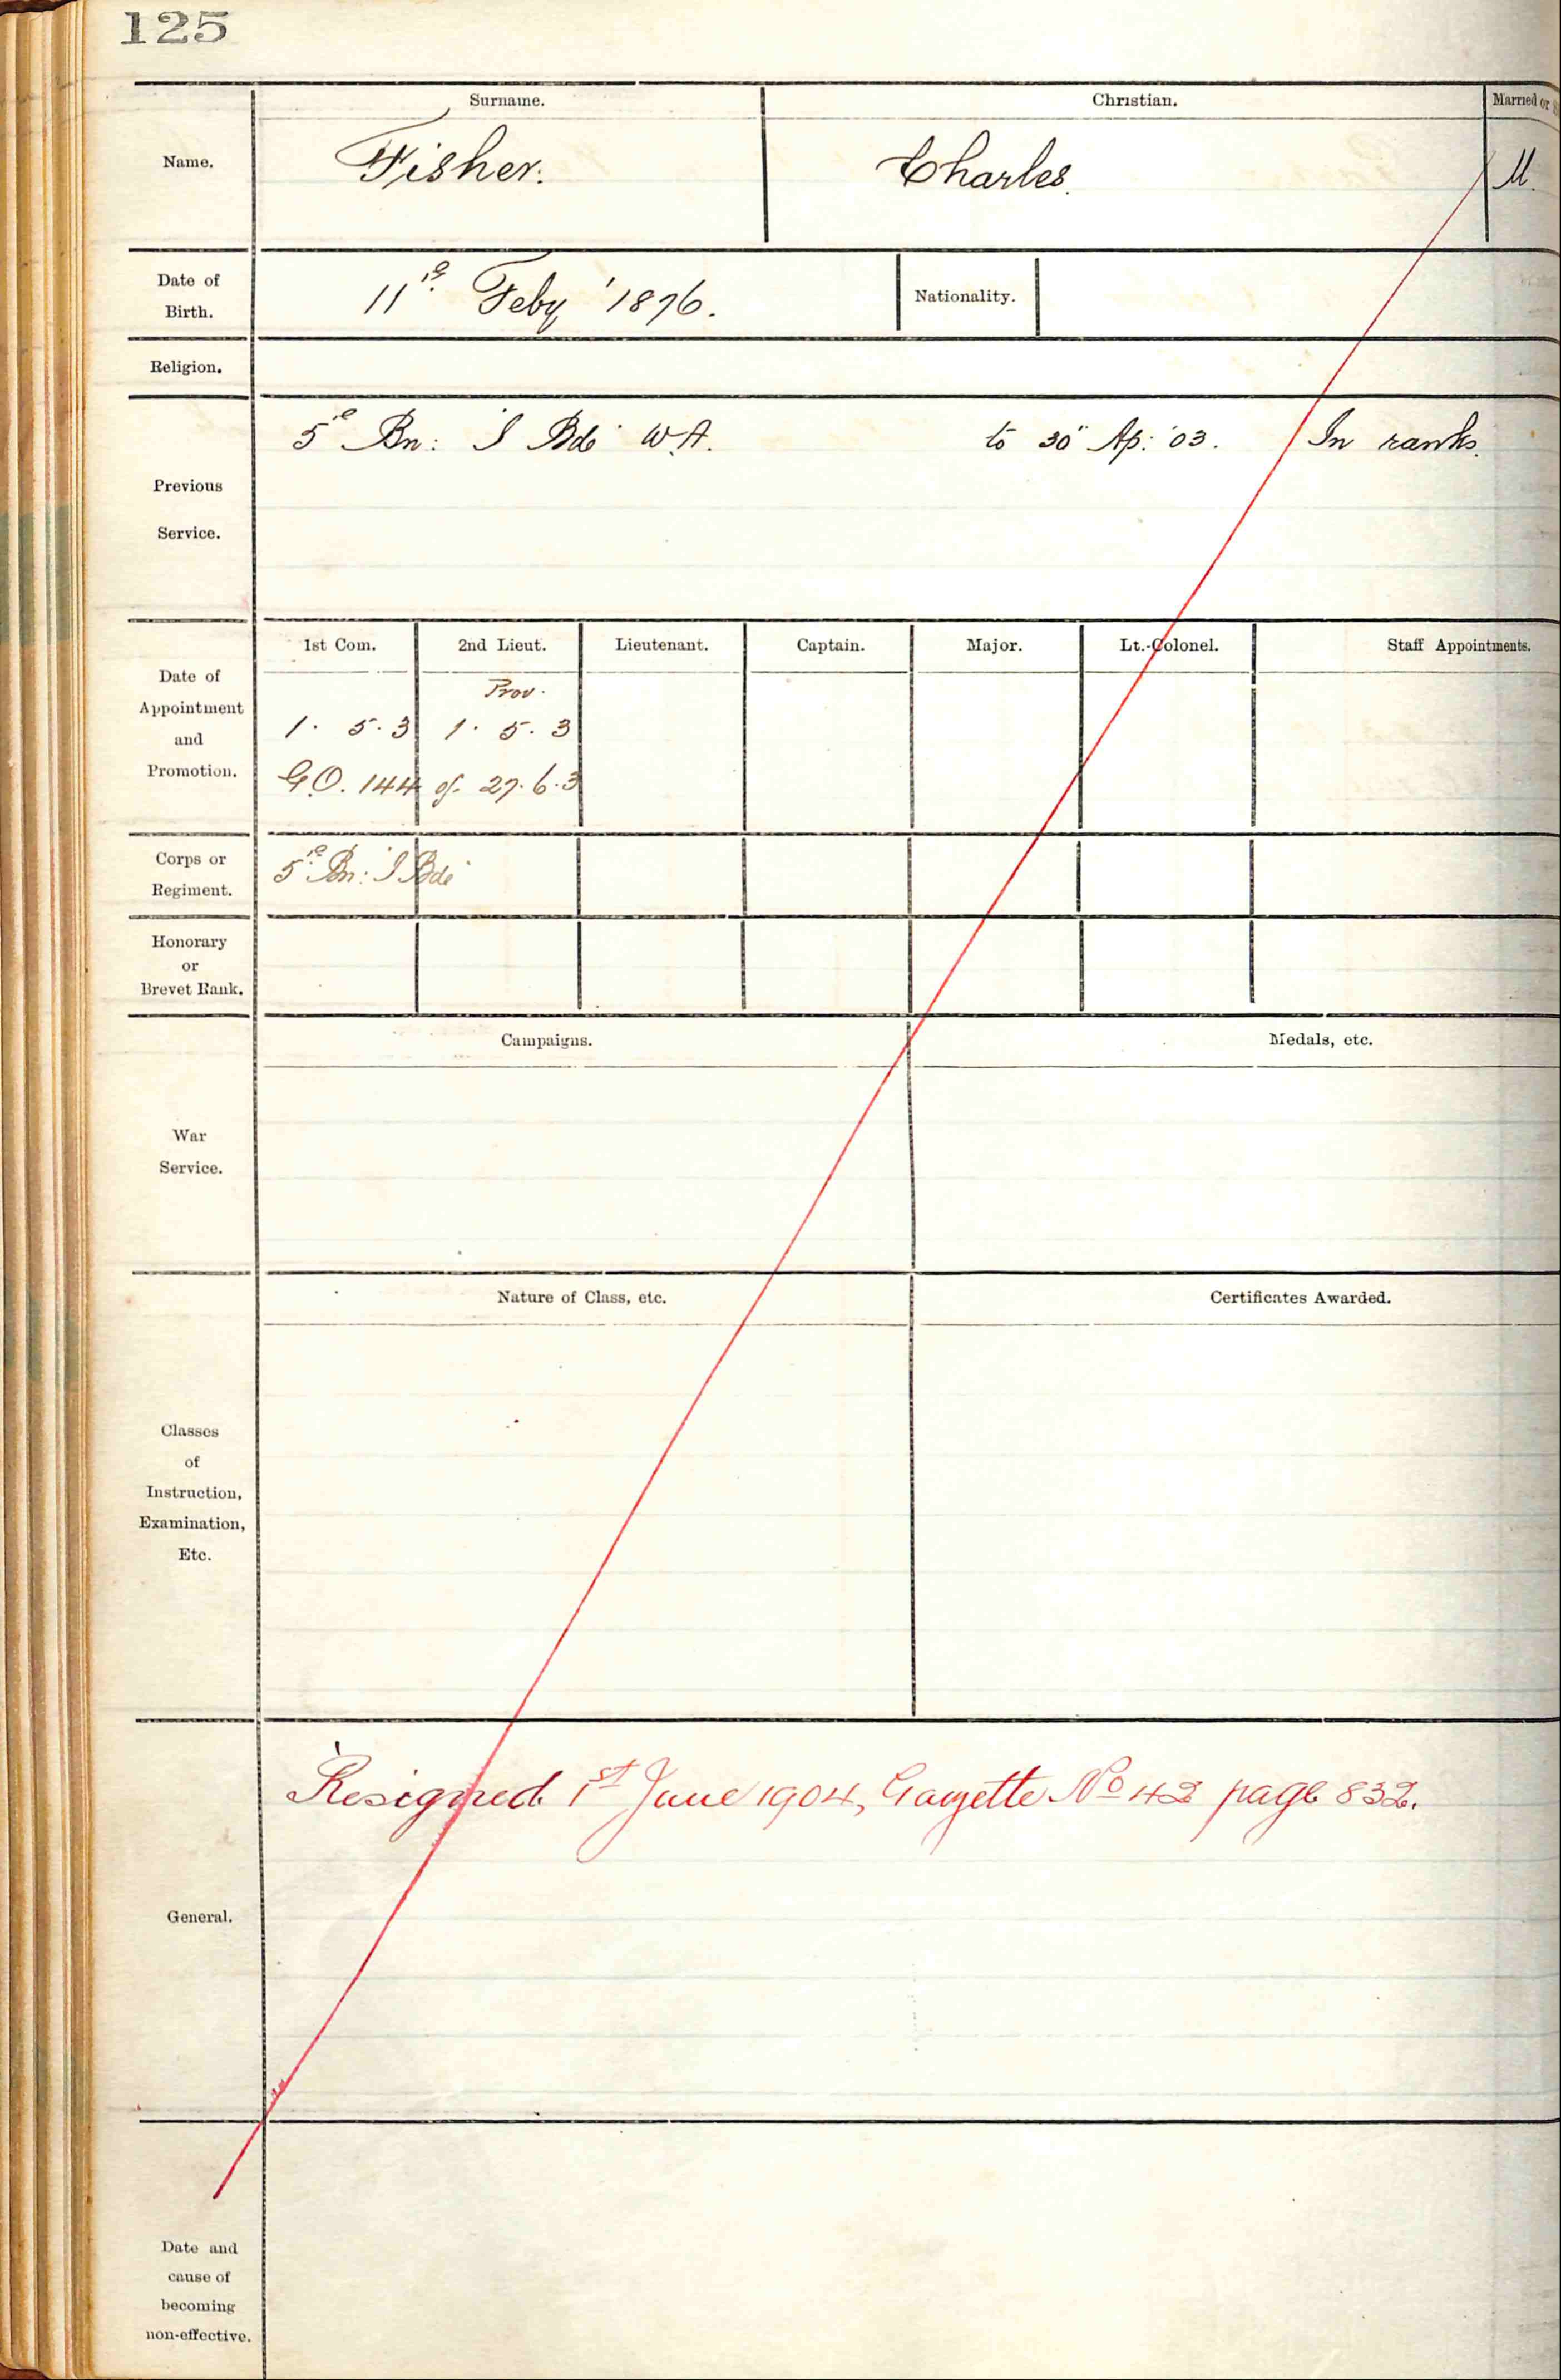 125
Surname. Christian. Married or
Name. Fisher. Charles. M.
Date of
Birth. 11th Feby 1876. Nationality.
Religion.
5th Bn: I Bde W.A. to 30" Ap: '03. In ranks.
Previous
Service.
1st Com. 2nd Lieut. Lieutenant. Captain. Major. Lt.-Colonel. Staff Appointments.
Date of
Appointment
and
Promotion.
Prov.
1. 5. 3 1. 5. 3
G.O. 144 of 27. 6. 3
Corps or
Regiment.
5th Bn: I Bde
Honorary
or
Brevet Rank.
Campaigns. Medals, etc.
War
Service.
Nature of Class, etc. Certificates Awarded.
Classes
of
Instruction,
Examination,
Etc.
Resigned 1st June 1904, Gazette No 42 page 832.
General.
Date and
cause of
becoming
non-effective.